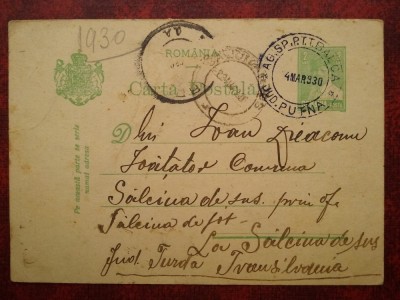 1930
ROMÂNIA
Carta Postala
AG.SP.P.T.T. BALCA
4 MAR 930
JUD. PUTNA
Pe această parte se scrie
numai adresa
Dlui Ioan Diaconu
Comuna
Sălcina de sus. prin of.
Sălcina de jos
La Sălcina de sus
Jud. Turda Transilvania